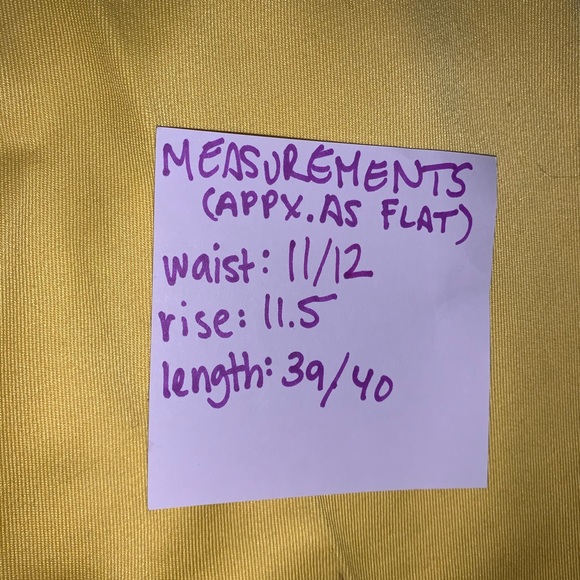 MEASUREMENTS
(APPX. AS FLAT)
waist: 11/12
rise: 11.5
length: 39/40